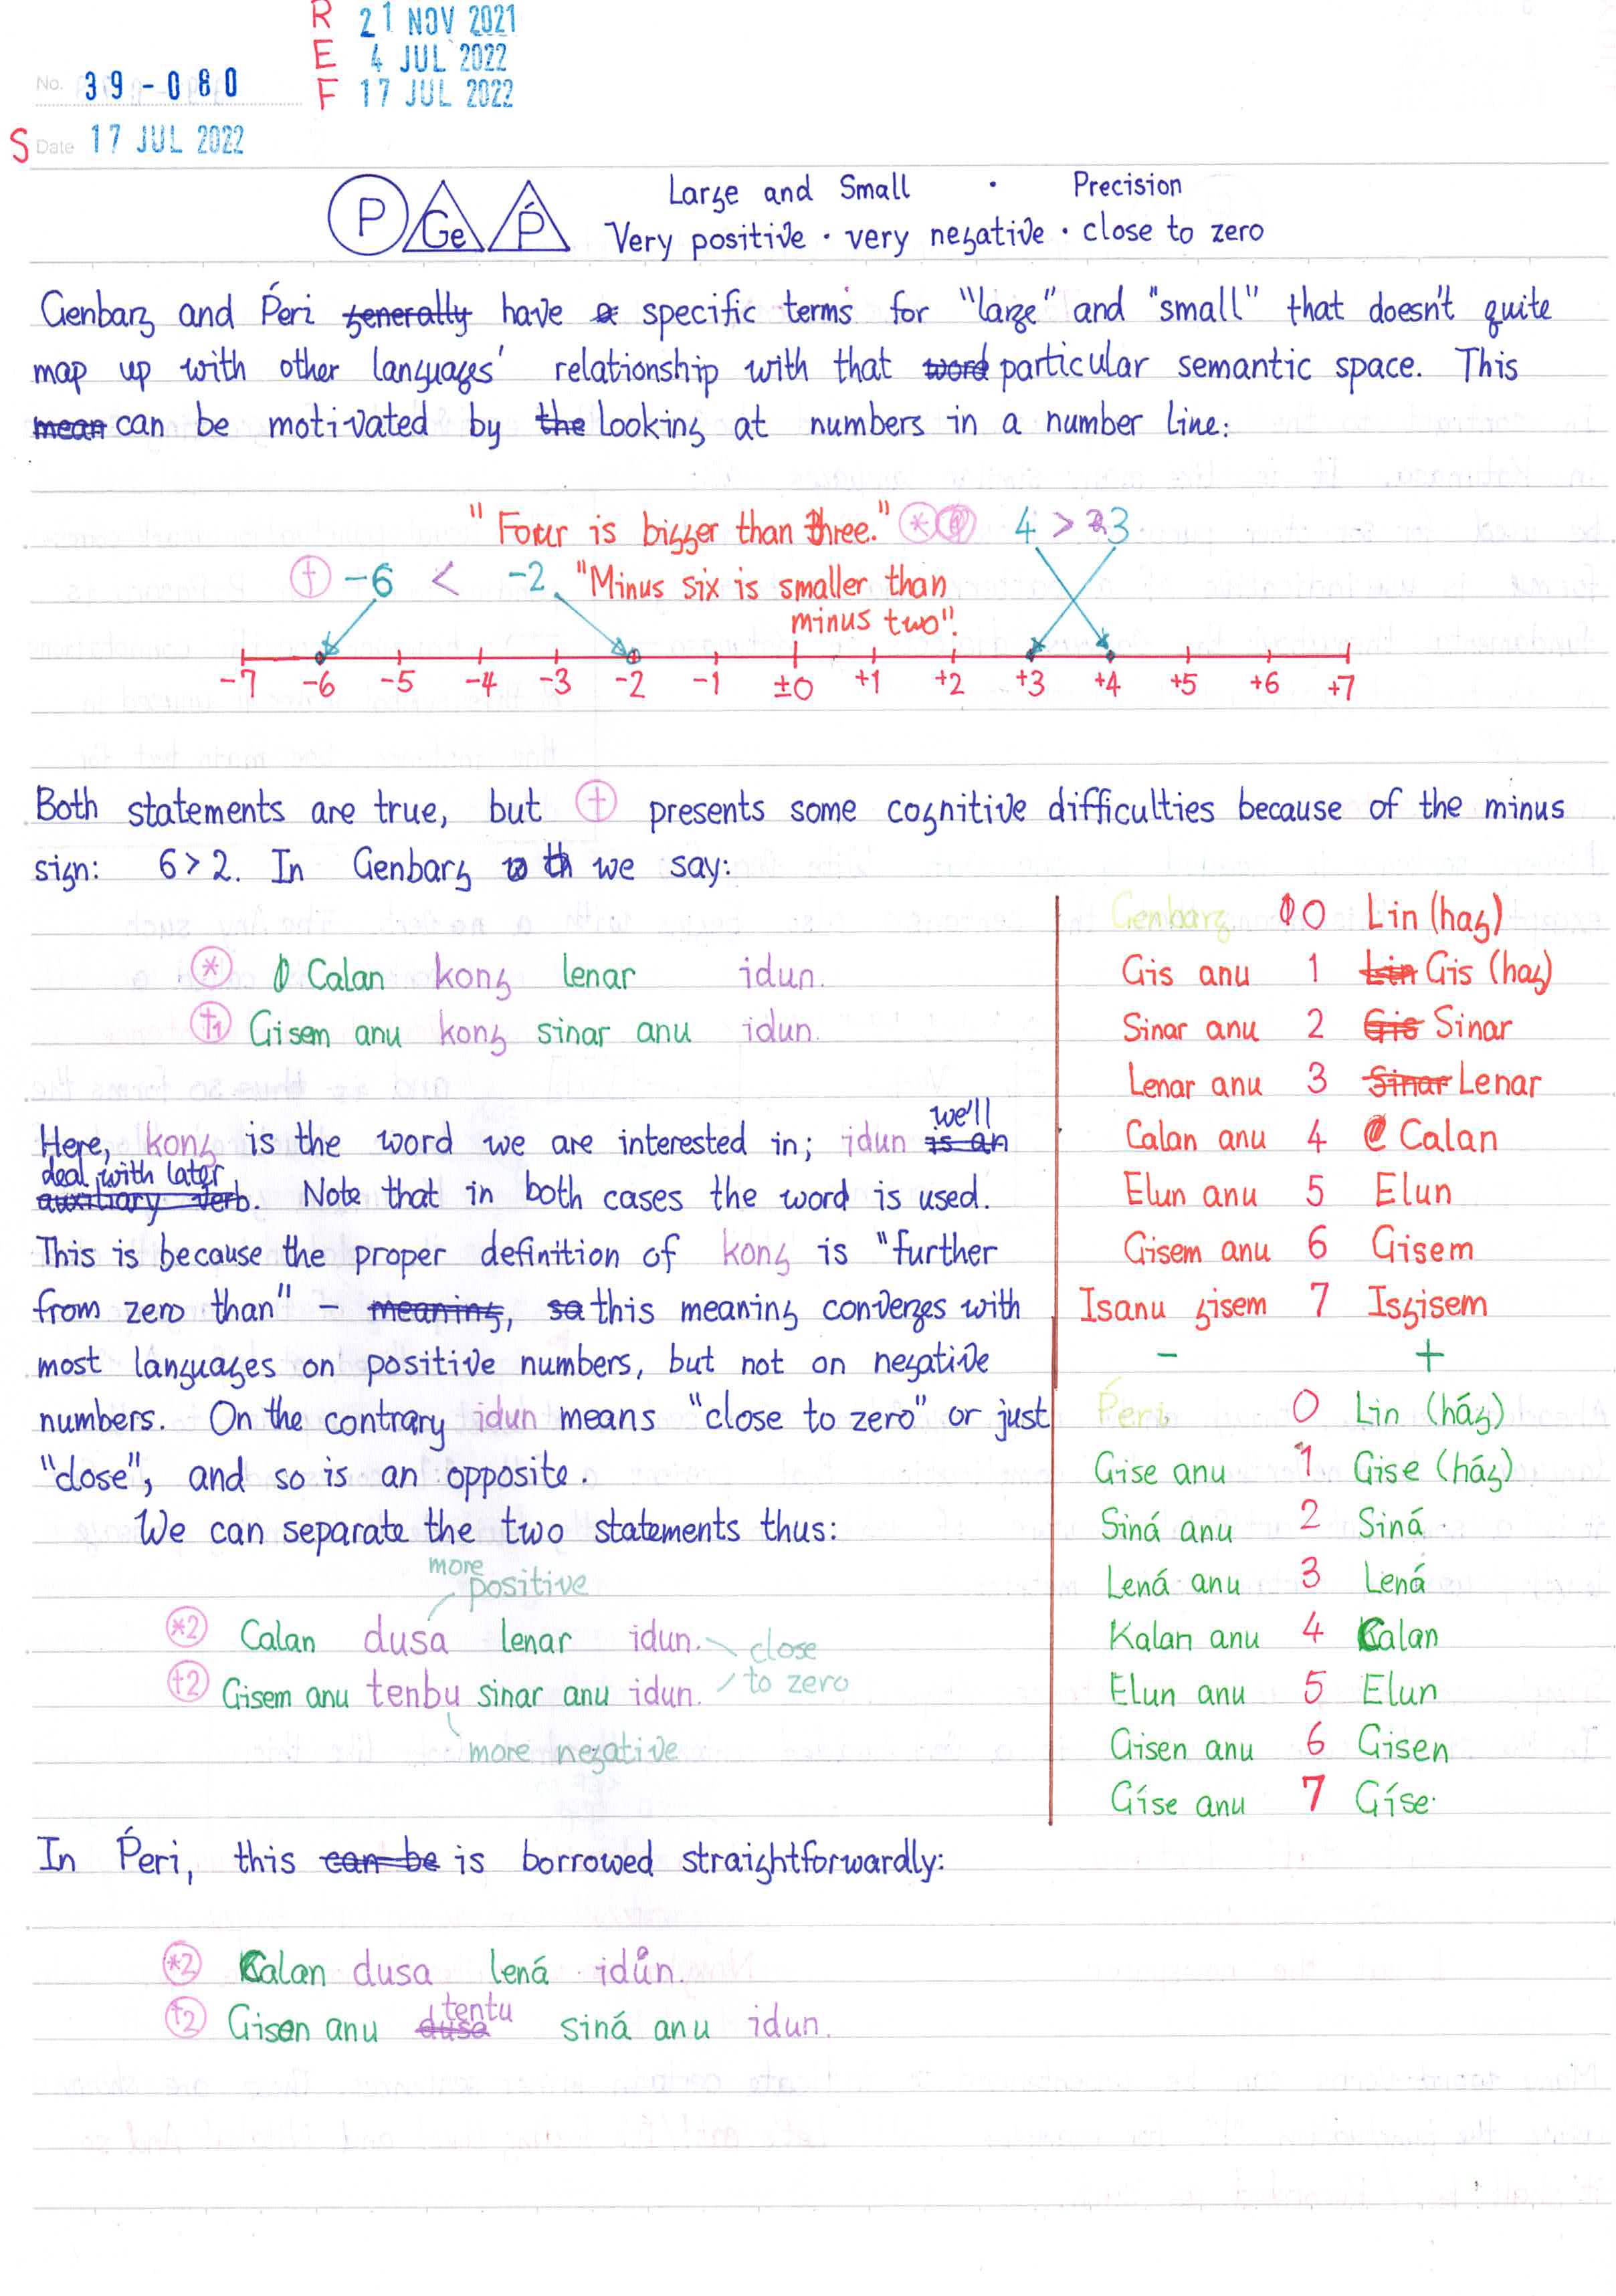 R 21 NOV 2021
E 4 JUL 2022
No. 39-080 F 17 JUL 2022
S Date 17 JUL 2022
P Ge Ṕ Large and Small · Precision
Very positive · very negative · close to zero
Genbarg and Ṕeri generally have a specific terms for "large" and "small" that doesn't quite
map up with other languages' relationship with that word particular semantic space. This
mean can be motivated by the looking at numbers in a number line:
"Four is bigger than three." * 4 > 3
† -6 < -2 "Minus six is smaller than
minus two".
-7 -6 -5 -4 -3 -2 -1 ±0 +1 +2 +3 +4 +5 +6 +7
Both statements are true, but † presents some cognitive difficulties because of the minus
sign: 6>2. In Genbarg we say:
* Calan kong lenar idun.
†1 Gisem anu kong sinar anu idun.
Here, kong is the word we are interested in; idun is an we'll
deal with later
auxiliary verb. Note that in both cases the word is used.
This is because the proper definition of kong is "further
from zero than" – meaning, so this meaning converges with
most languages on positive numbers, but not on negative
numbers. On the contrary idun means "close to zero" or just
"close", and so is an opposite.
We can separate the two statements thus:
more
positive
*2 Calan dusa lenar idun. close
†2 Gisem anu tenbu sinar anu idun. to zero
more negative
Genbarg 0 Lin (hag)
Gis anu 1 Lin Gis (hag)
Sinar anu 2 Gis Sinar
Lenar anu 3 Sinar Lenar
Calan anu 4 Calan
Elun anu 5 Elun
Gisem anu 6 Gisem
Isanu gisem 7 Isgisem
– +
Ṕeri 0 Lin (hág)
Gise anu 1 Gise (hág)
Siná anu 2 Siná
Lená anu 3 Lená
Kalan anu 4 Kalan
Elun anu 5 Elun
Gisen anu 6 Gisen
Gíse anu 7 Gíse
In Ṕeri, this can be is borrowed straightforwardly:
*2 Kalan dusa lená idůn.
†2 Gisen anu dusa tentu siná anu idun.